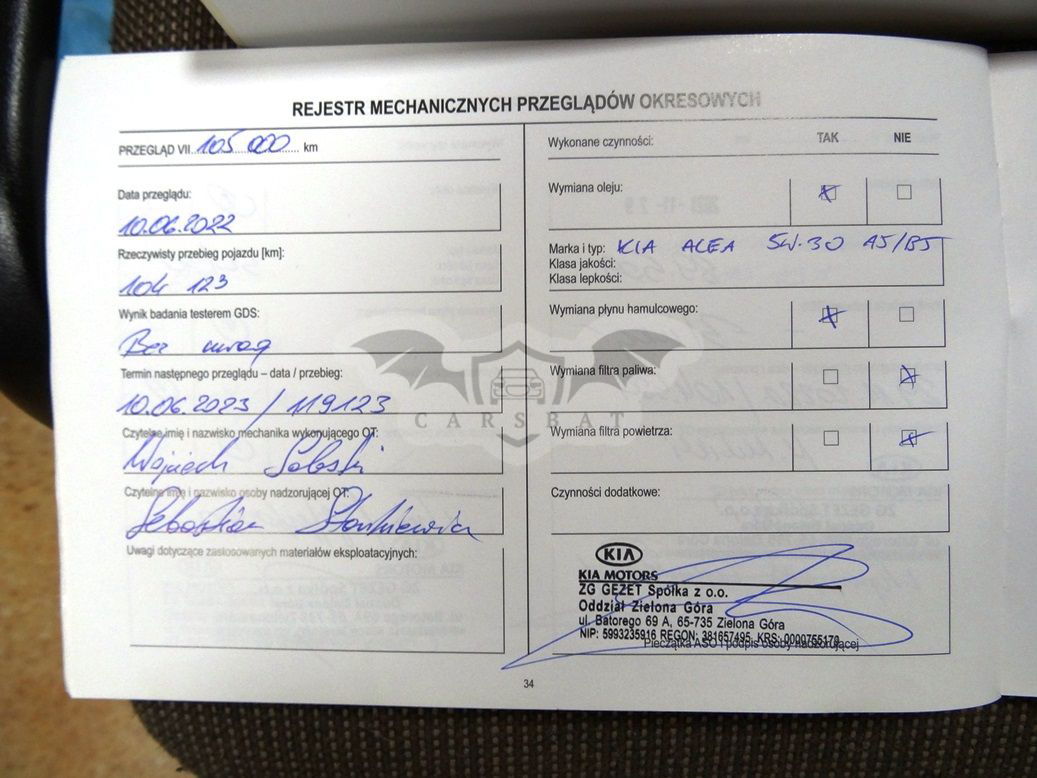 REJESTR MECHANICZNYCH PRZEGLĄDÓW OKRESOWYCH
PRZEGLĄD VII..105 000.... km
Data przeglądu:
10.06.2022
Rzeczywisty przebieg pojazdu [km]:
104 123
Wynik badania testerem GDS:
Bez uwag
Termin następnego przeglądu – data / przebieg:
10.06.2023 / 119123
Czytelne imię i nazwisko mechanika wykonującego OT:
Wojciech
Czytelne imię i nazwisko osoby nadzorującej OT:
Sebastian Stankiewicz
Uwagi dotyczące zastosowanych materiałów eksploatacyjnych:
Wykonane czynności: TAK NIE
Wymiana oleju:
Marka i typ: KIA ALEA 5W-30 A5/B5
Klasa jakości:
Klasa lepkości:
Wymiana płynu hamulcowego:
Wymiana filtra paliwa:
Wymiana filtra powietrza:
Czynności dodatkowe:
KIA
KIA MOTORS
ZG GEZET Spółka z o.o.
Oddział Zielona Góra
ul. Batorego 69 A, 65-735 Zielona Góra
NIP: 5993235916 REGON: 381657495, KRS: 0000755179
Pieczątka ASO i podpis osoby nadzorującej
34
CARSBAT